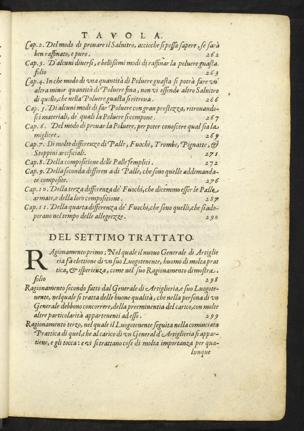 TAVOLA.
Cap. 2. Del modo di prouare il Salnitro, accioche si possa sapere se sarà
ben raffinato, e puro. 262
Cap. 3. D'alcuni diuersi, e bellissimi modi di raffinar la poluere guasta
263
Cap. 4. In che modo di vna quantità di Poluere guasta si potrà fare vn'
altra minor quantità di Poluere fina, non vi essendo altro Salnitro
di quello, che nella Poluere guasta si ritroua. 266
Cap. 5. D'alcuni modi di far Poluere con gran prestezza, ritrouando-
si i materiali, de' quali la Poluere si compone. 267
Cap. 6. Del modo di prouar la Poluere, per poter conoscere qual sia la
migliore. 269
Cap. 7. Di molte differenze di Palle, Fuochi, Trombe, Pignatte, &
Stoppini artificiali. 271
Cap. 8. Della compositione delle Palle semplici. 272
Cap. 9. Della seconda differenza di Palle, che sono quelle addemanda-
te composte. 276
Cap. 10. Della terza differenza de' Fuochi, che dicemmo esser le Palle
armate, e della loro compositione. 287
Cap. 11. Della quarta differenza de' Fuochi, che sono quelli, che si ado-
perano nel tempo delle allegrezze. 290
DEL SETTIMO TRATTATO.
Ragionamento primo, Nel quale il nuouo Generale di Artiglie
ria fà elettione di vn suo Luogotenente, huomo di molta prat
tica, & isperienza, come nel suo Ragionamento dimostra.
298
Ragionamento secondo fatto dal Generale di Artiglieria, e suo Luogote-
nente, nel quale si tratta delle buone qualità, che nella persona di vn
Generale debbono concorrere, della preeminenza del carico, con molte
altre particolarità appartenenti ad esso. 299
Ragionamento terzo, nel quale il Luogotenente seguita nella cominciata
Prattica di quel, che al carico di vn General d'Artiglieria si appar-
tiene, e gli tocca: e vi si trattano cose di molta importanza per qua-
lunque